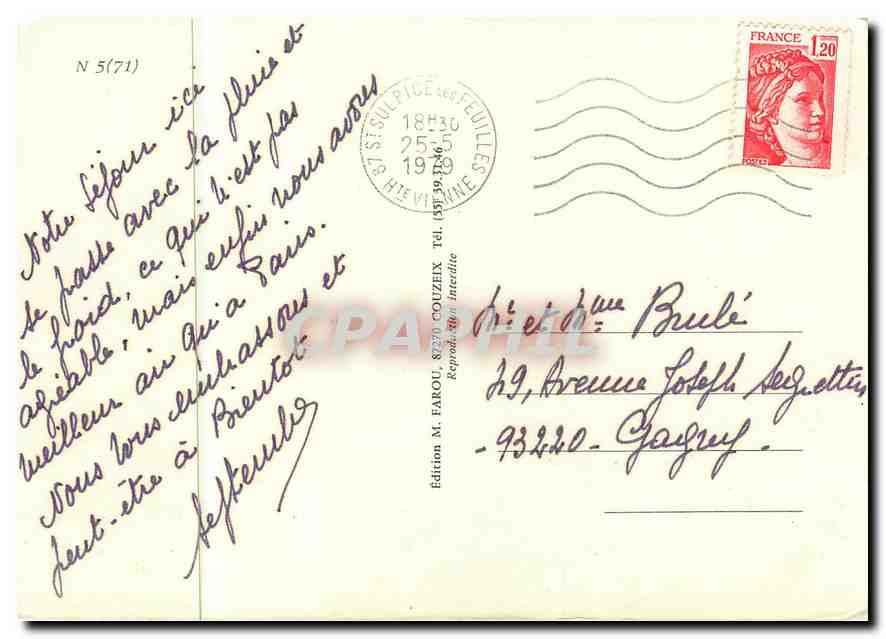 N 5(71)
Notre séjour ici
se passe avec la pluie et
le froid, ce qui n'est pas
agréable, mais enfin nous avons
meilleur air qu'à Paris.
Nous vous embrassons et
peut-être à Bientôt
87 ST SULPICE LES FEUILLES
18H30
25-5
1979
HTE VIENNE
FRANCE
1,20
POSTES
Édition M. FAROU, 87270 COUZEIX Tél. (55) 39.31.46
Reproduction interdite
CPAPHIL
Mr et Mme Brulé
49, Avenue Joseph
93220 - Gagny.